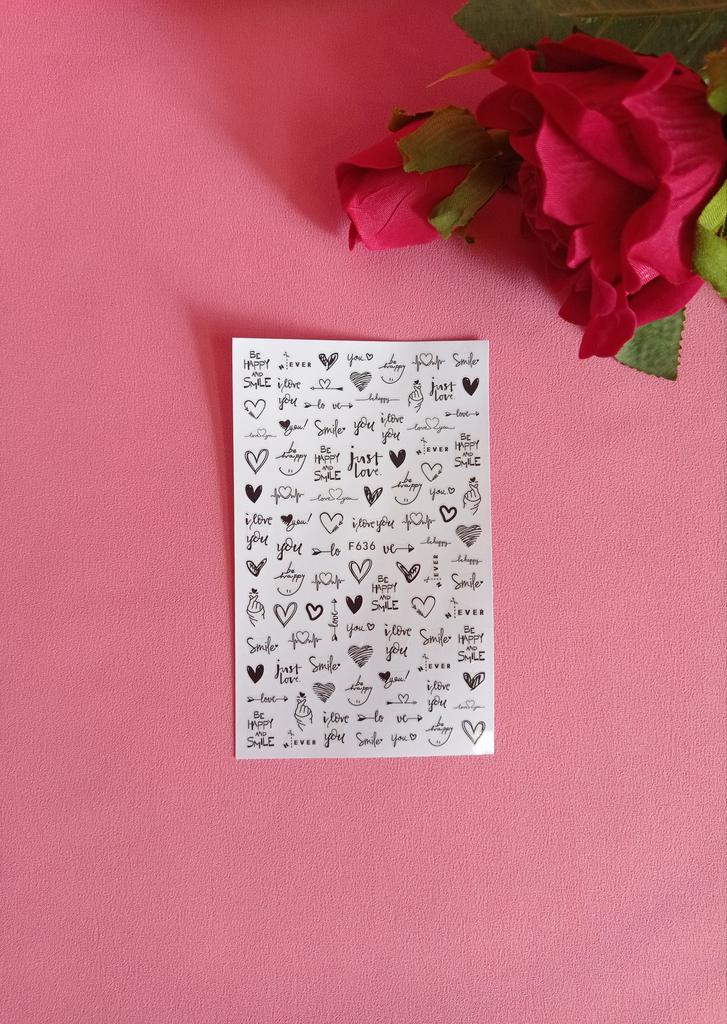 BE HAPPY AND SMILE
EVER
you
be happy
Smile
i love you
just love
lo ve
be happy
love
love you
you!
Smile
you
i love you
love you
be happy
BE HAPPY AND SMILE
just love.
EVER
BE HAPPY AND SMILE
love you
be happy
you
i love you
you!
i love you
you
lo F636 ve
be happy
be happy
be happy
EVER
Smile
BE HAPPY AND SMILE
love
EVER
Smile
you
i love you
Smile
BE HAPPY AND SMILE
just love.
Smile
EVER
be happy
you!
i love you
love
love you
BE HAPPY AND SMILE
i love you
lo ve
EVER
Smile
you
be happy